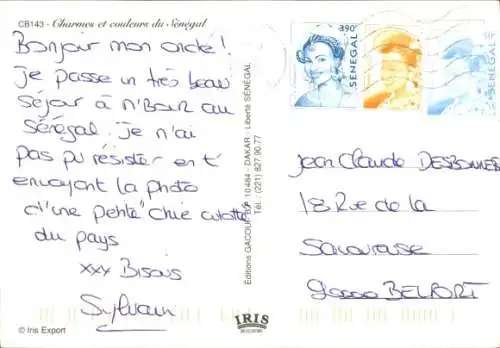 CB143 - Charmes et couleurs du Sénégal
Bonjour mon oncle!
Je passe un très beau
séjour à N'Bour au
Sénégal. Je n'ai
pas pu résister en t'
envoyant la photo
d'une petite "chic culotté"
du pays
xxx Bisous
Sylvain
© Iris Export
Editions GACOU B.P. 10484 - DAKAR - Liberté SÉNÉGAL
Tél.: (221) 827 90 77
IRIS
390
SENEGAL
SENEGAL
SENEGAL
Jean Claude DESBONNES
18 Rue de la
Savoureuse
90000 BELFORT